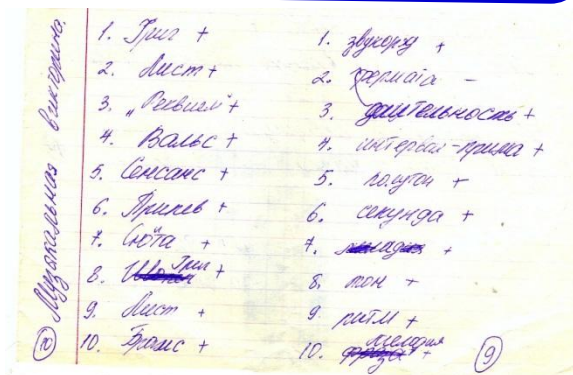 Музыкальная викторина.
1. Григ +
2. Лист +
3. „Реквием" +
4. Вальс +
5. Сенсанс +
6. Припев +
7. Сюита +
8. Григ +
9. Лист +
10. Брамс +
10
1. звукоряд +
2. фермата -
3. длительность +
4. интервал - прима +
5. полутон +
6. секунда +
7. +
8. тон +
9. ритм +
10. мелодия +
9